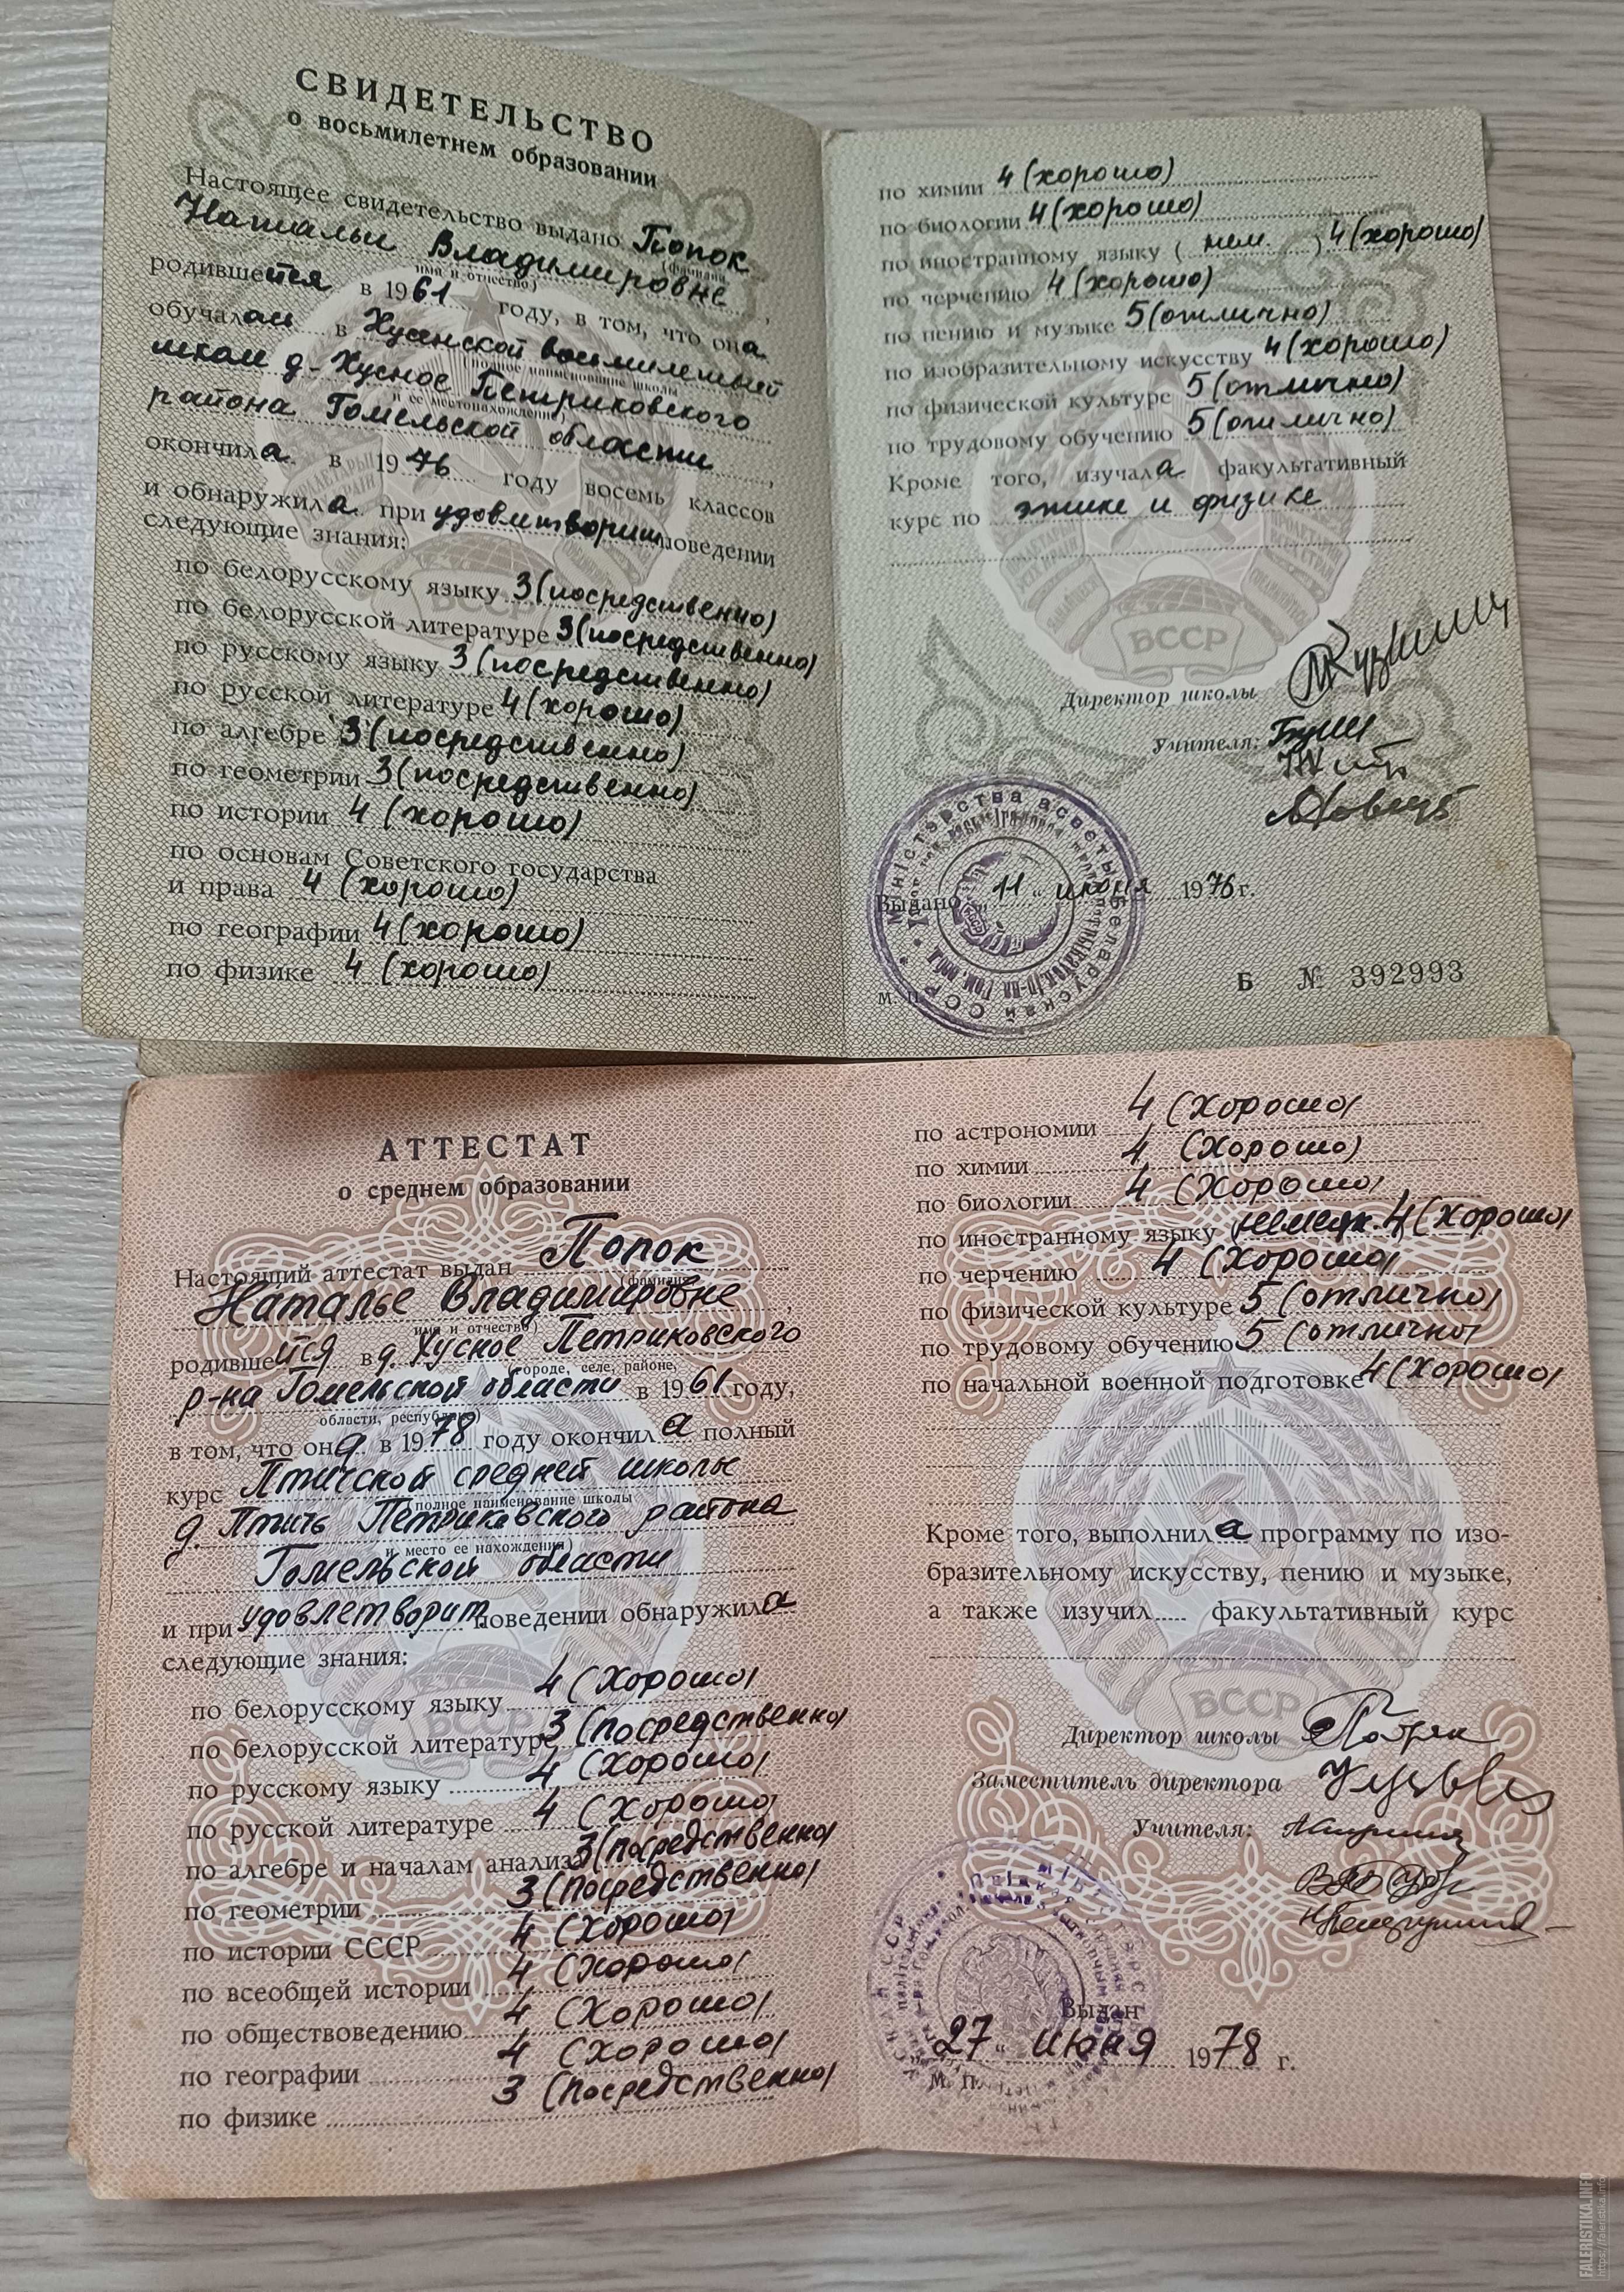 СВИДЕТЕЛЬСТВО
о восьмилетнем образовании
Настоящее свидетельство выдано Попок
(фамилия
Натальи Владимировне,
имя и отчество)
родившейся в 1961 году, в том, что она
обучалась в Хуснской восьмилетней
(полное наименование школы
школе д. Хусное Петриковского
и ее местонахождение)
района Гомельской области,
окончила в 1976 году восемь классов
и обнаружила при удовлетворит поведении
следующие знания:
по белорусскому языку 3 (посредственно)
по белорусской литературе 3 (посредственно)
по русскому языку 3 (посредственно)
по русской литературе 4 (хорошо)
по алгебре 3 (посредственно)
по геометрии 3 (посредственно)
по истории 4 (хорошо)
по основам Советского государства
и права 4 (хорошо)
по географии 4 (хорошо)
по физике 4 (хорошо)
по химии 4 (хорошо)
по биологии 4 (хорошо)
по иностранному языку (нем.) 4 (хорошо)
по черчению 4 (хорошо)
по пению и музыке 5 (отлично)
по изобразительному искусству 4 (хорошо)
по физической культуре 5 (отлично)
по трудовому обучению 5 (отлично)
Кроме того, изучала факультативный
курс по этике и физике
БССР
Директор школы
Учителя:
Міністэрства асветы Беларускай ССР
Выдано "11" июня 1976 г.
М. П.
Б № 392993
АТТЕСТАТ
о среднем образовании
Настоящий аттестат выдан Попок
(фамилия,
Наталье Владимировне,
имя и отчество)
родившейся в д. Хусное Петриковского
(городе, селе, районе,
р-на Гомельской области в 1961 году,
области, республике)
в том, что она в 1978 году окончила полный
курс Птичской средней школы
(полное наименование школы
д. Птичь Петриковского района
и место ее нахождения)
Гомельской области
и при удовлетворит. поведении обнаружила
следующие знания:
по белорусскому языку 4 (хорошо)
по белорусской литературе 3 (посредственно)
по русскому языку 4 (хорошо)
по русской литературе 4 (хорошо)
по алгебре и началам анализа 3 (посредственно)
по геометрии 3 (посредственно)
по истории СССР 4 (хорошо)
по всеобщей истории 4 (хорошо)
по обществоведению 4 (хорошо)
по географии 4 (хорошо)
по физике 3 (посредственно)
по астрономии 4 (хорошо)
по химии 4 (хорошо)
по биологии 4 (хорошо)
по иностранному языку (немецк.) 4 (хорошо)
по черчению 4 (хорошо)
по физической культуре 5 (отлично)
по трудовому обучению 5 (отлично)
по начальной военной подготовке 4 (хорошо)
Кроме того, выполнила программу по изо-
бразительному искусству, пению и музыке,
а также изучил факультативный курс
БССР
Директор школы
Заместитель директора
Учителя:
Выдан
"27" июня 1978 г.
М. П.
FALERISTIKA.INFO
https://faleristika.info